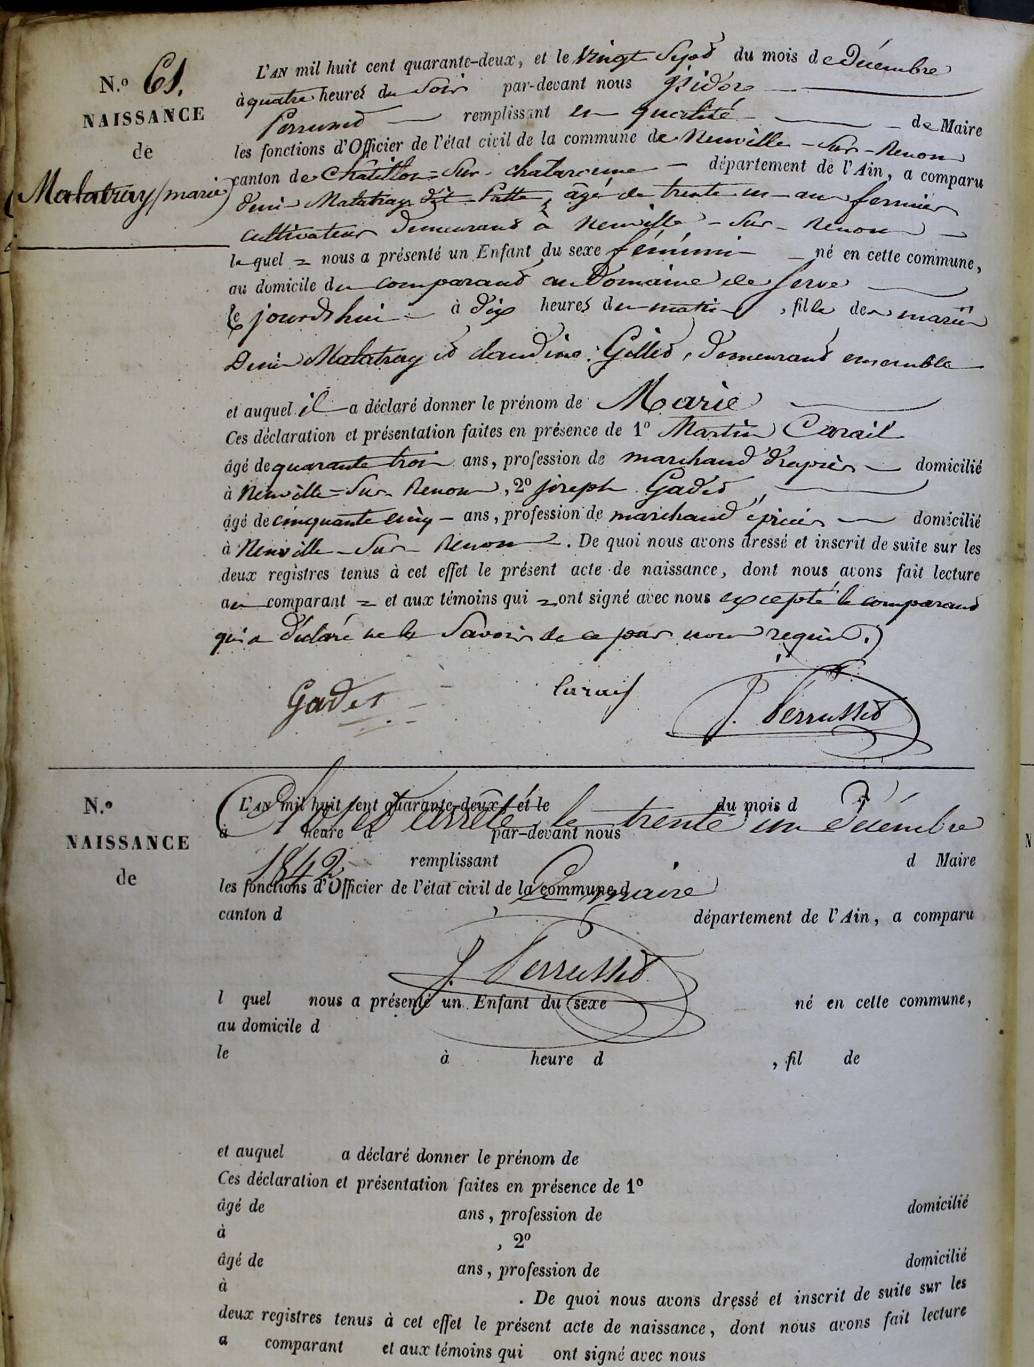 N.º 61.
NAISSANCE
de
Malatray (marie)
L'AN mil huit cent quarante-deux, et le vingt sept du mois de Décembre
à quatre heures du soir par-devant nous isidore
Perrussed remplissant en qualité de Maire
les fonctions d'Officier de l'état civil de la commune de Neuville-Sur-Renom
canton de Châtillon-Sur-chalaronne département de l'Ain, a comparu
Denis Malatray dit Patte, âgé de trente un an fermier
cultivateur demeurant à Neuville-Sur-Renom
lequel nous a présenté un Enfant du sexe féminin né en cette commune,
au domicile du comparant au Domaine de serve
le jourd'hui à dix heures du matin, fille de mariés
Denis Malatray et claudine Gillet, demeurant ensemble
et auquel il a déclaré donner le prénom de Marie
Ces déclaration et présentation faites en présence de 1º Martin Carail
âgé de quarante trois ans, profession de marchand drapier domicilié
à Neuville-Sur-Renom, 2º joseph Gadet
âgé de cinquante cinq ans, profession de marchand épicier domicilié
à Neuville-Sur-Renom. De quoi nous avons dressé et inscrit de suite sur les
deux registres tenus à cet effet le présent acte de naissance, dont nous avons fait lecture
au comparant et aux témoins qui ont signé avec nous excepté le comparant
qui a déclaré ne le Savoir de ce par nous requis.
Gadet Carail J. Perrussed
N.º
NAISSANCE
de
L'AN mil huit cent quarante-deux, et le du mois d
Clos et arrêté le trente un Décembre
à heure d par-devant nous
1842
remplissant d Maire
les fonctions d'Officier de l'état civil de la commune d
Le maire
canton d département de l'Ain, a comparu
J. Perrussed
l quel nous a présenté un Enfant du sexe né en cette commune,
au domicile d
le à heure d , fil de
et auquel a déclaré donner le prénom de
Ces déclaration et présentation faites en présence de 1º
âgé de ans, profession de domicilié
à , 2º
âgé de ans, profession de domicilié
à . De quoi nous avons dressé et inscrit de suite sur les
deux registres tenus à cet effet le présent acte de naissance, dont nous avons fait lecture
a comparant et aux témoins qui ont signé avec nous